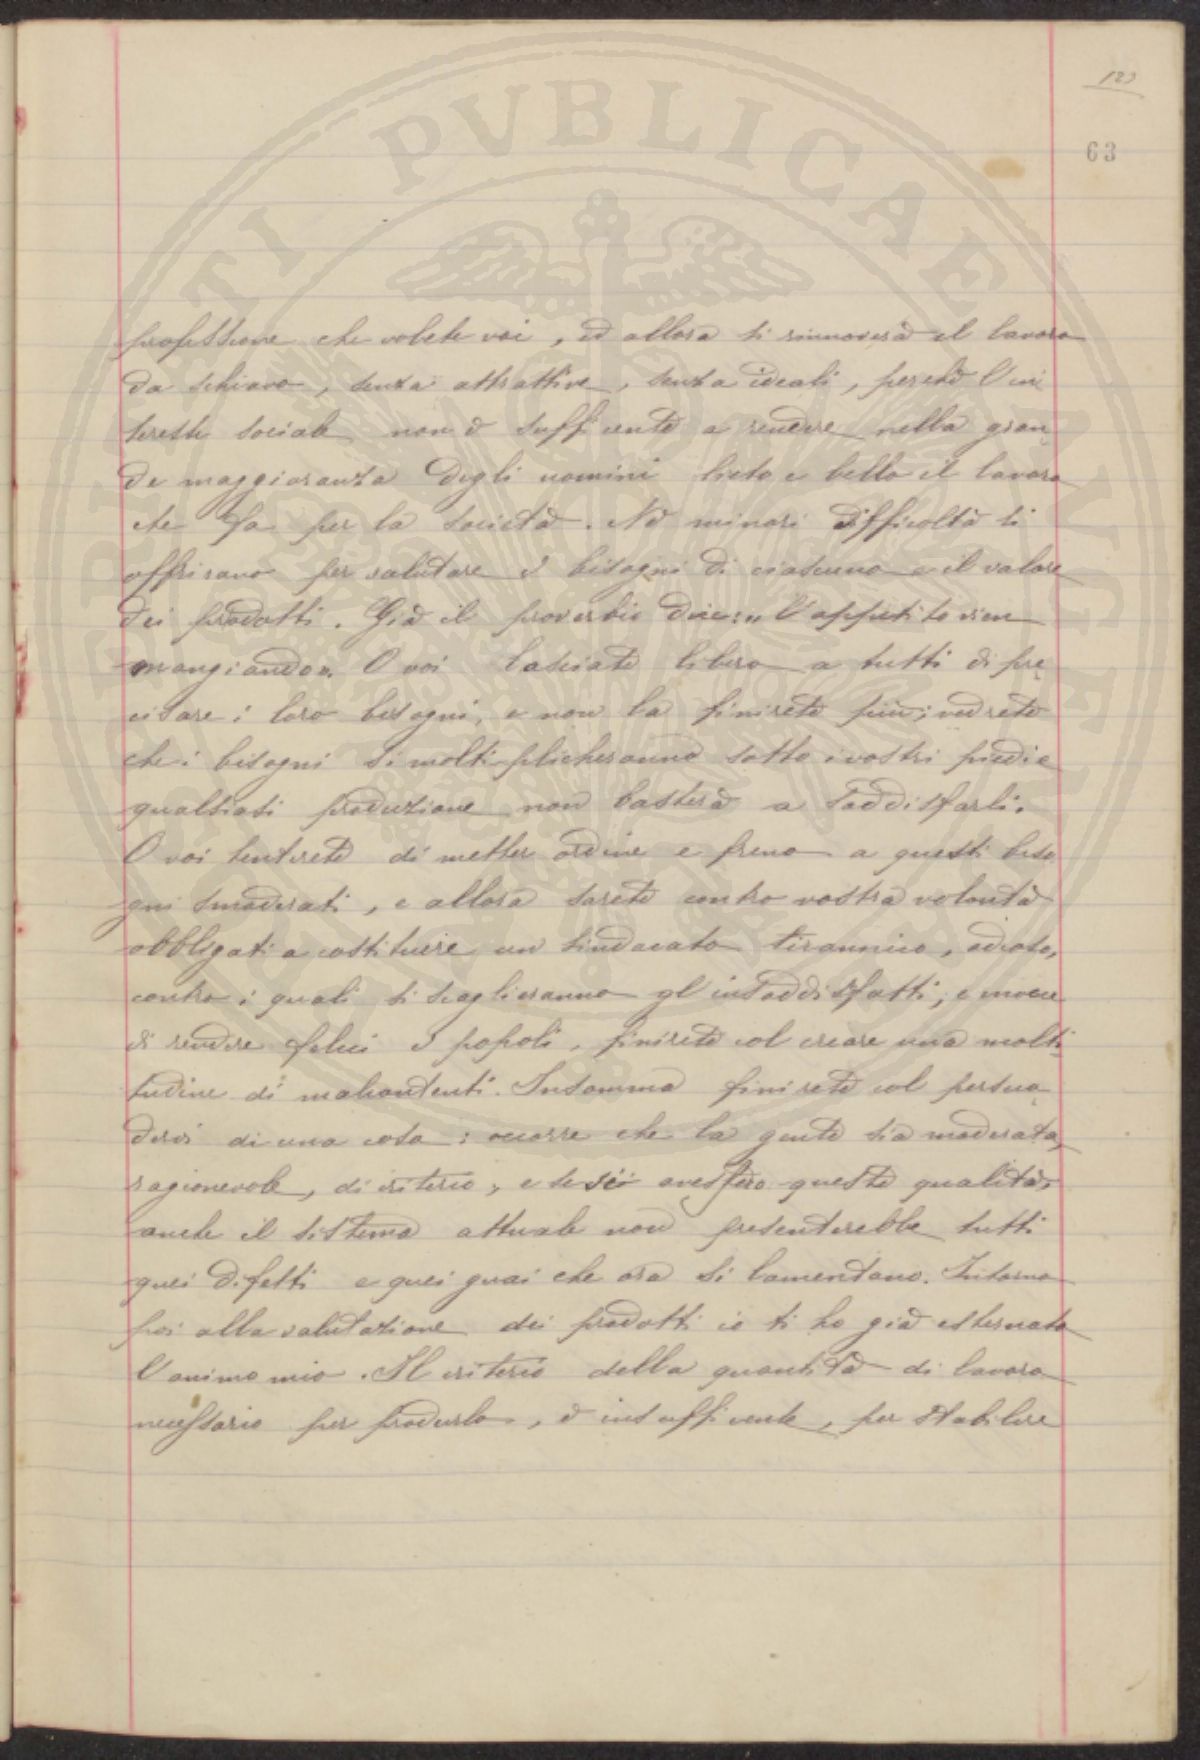 123
63
professione che volete voi, ed allora si rinnoverà il lavoro
da schiavo, senza attrattive, senza ideali, perchè l'in
teresse sociale non è sufficente a rendere nella gran
de maggioranza degli uomini lieto e bello il lavoro
che fa per la società. Nè minori difficoltà si
offrirano per valutare i bisogni di ciascuno e il valore
dei prodotti. Già il proverbio dice: "l'appetito vien
mangiando". O voi lasciate libero a tutti di pre
cisare i loro bisogni, e non la finirete più; vedrete
che i bisogni si moltiplicheranno sotto i vostri piedi e
qualsiasi produzione non basterà a soddisfarli.
O voi tenterete di metter ordine e freno a questi biso
gni smoderati, e allora sarete contro vostra volontà
obbligati a costituire un sindacato tirannico, odioso,
contro i quali si scaglieranno gl'insoddisfatti; e invece
di rendere felici i popoli, finirete col creare una molti
tudine di malcontenti. Insomma finirete col persua
dervi di una cosa: occorre che la gente sia moderata,
ragionevole, di criterio, e se vi avessero queste qualità,
anche il sistema attuale non presenterebbe tutti
quei difetti e quei guai che ora si lamentano. Intorno
poi alla valutazione dei prodotti io ti ho già esternato
l'animo mio. Il criterio della quantità di lavoro
necessario per produrlo, è insufficente, per stabilire
PUBLICAE